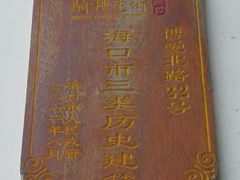 骑楼老街
博爱北路22号
海口市二类历史建筑
海口市人民政府
二〇一一年八月